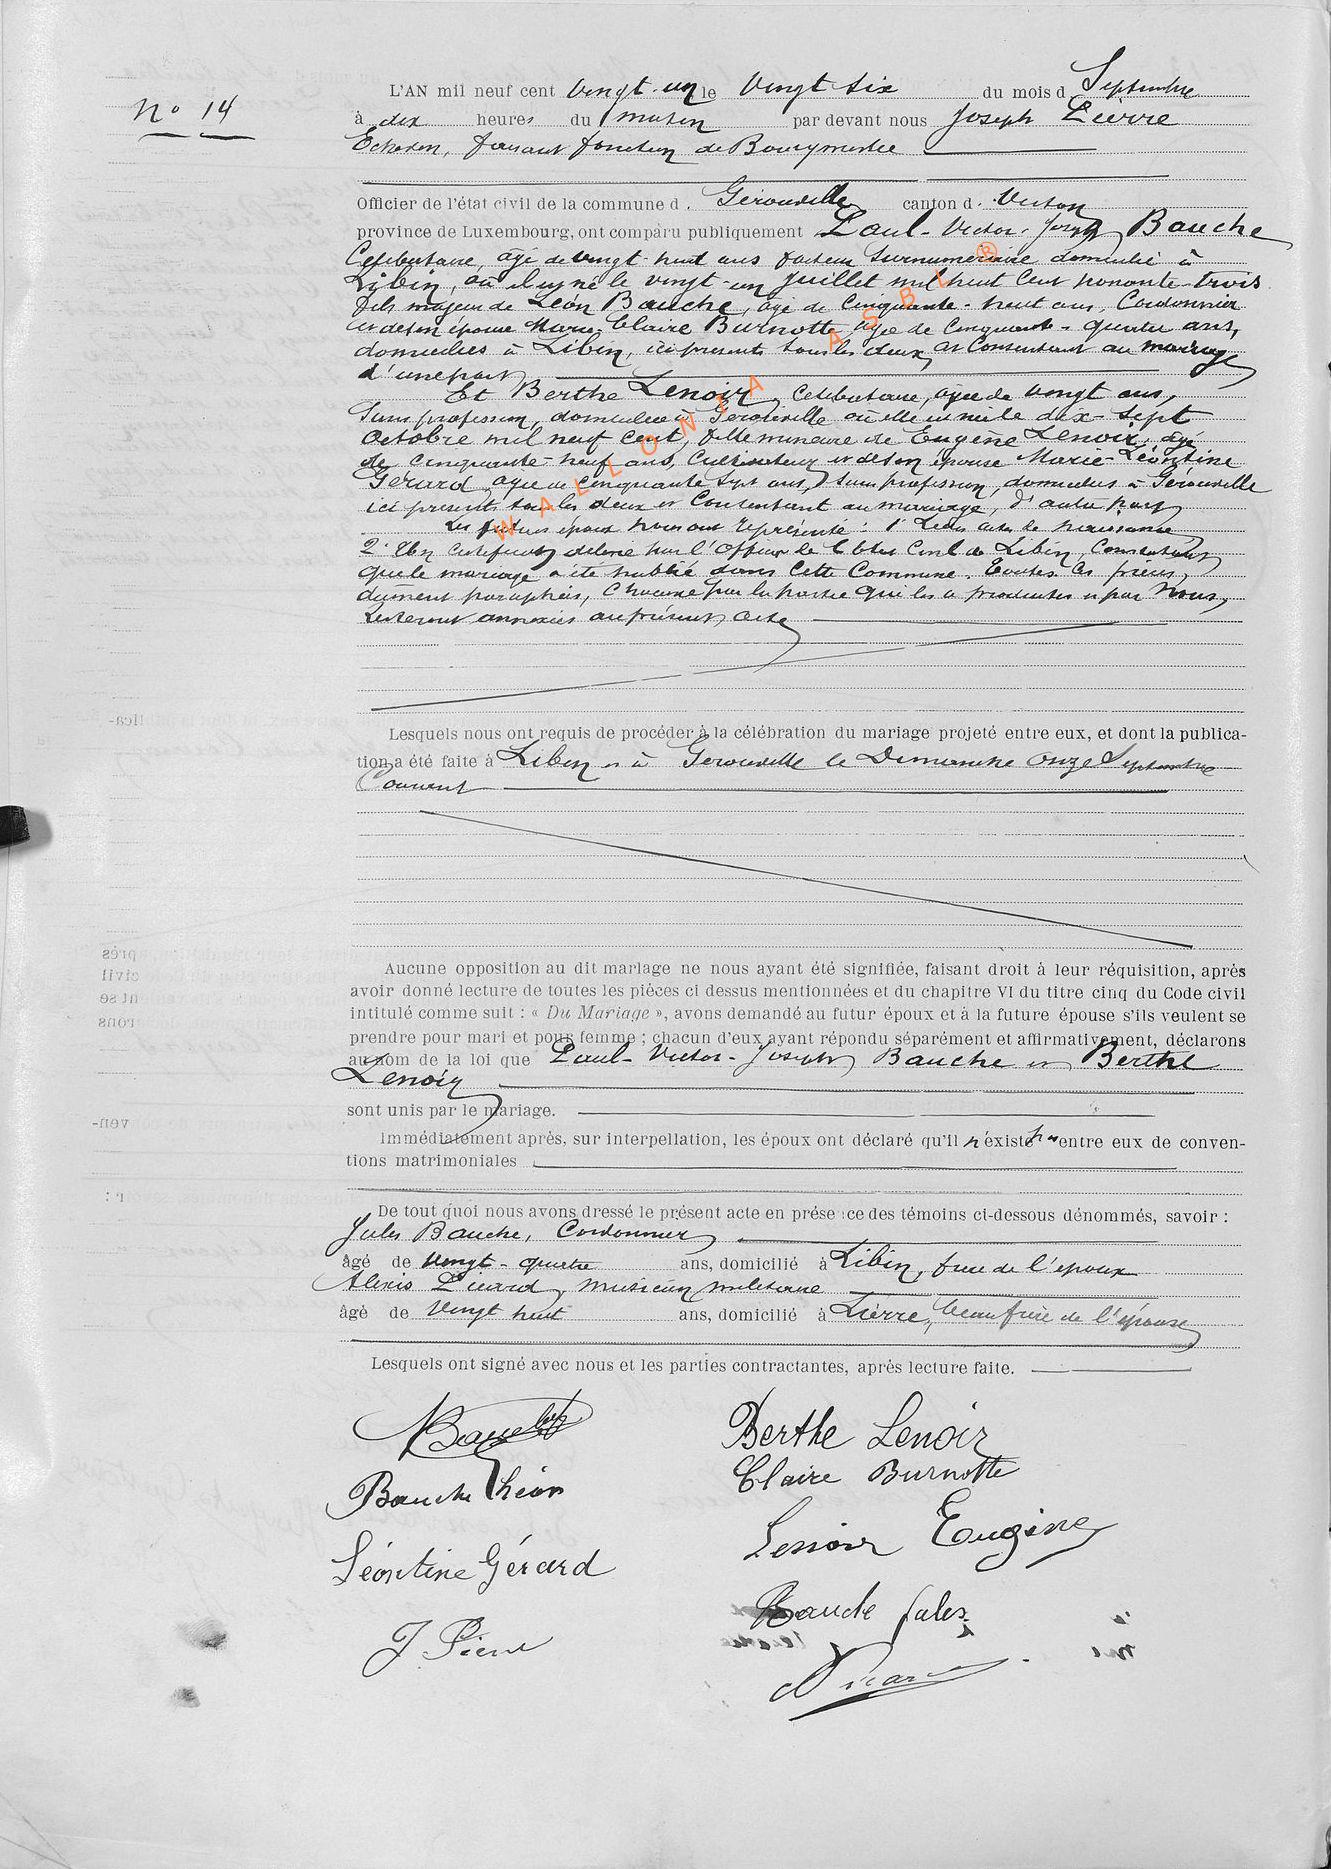 No 14
L'AN mil neuf cent vingt-un le vingt six du mois d Septembre
à dix heures du matin par devant nous Joseph
Echevin, faisant fonction de Bourgmestre
Officier de l'état civil de la commune d. Gérouville canton d. Virton
province de Luxembourg, ont comparu publiquement Paul-Victor-Joseph Bauche
Célibataire, âgé de vingt-huit ans facteur surnuméraire domicilié à
Libin, où il est né le vingt-un Juillet mil huit cent nonante-trois
fils majeur de Léon Bauche, âgé de cinquante-huit ans, Cordonnier
et de son épouse Marie-Claire Burnotte, âgée de cinquante-quatre ans,
domiciliés à Libin, ici présents tous les deux et consentant au mariage
d'une part
Et Berthe Lenoir, célibataire, âgée de vingt ans,
sans profession, domiciliée à Gérouville où elle est née le dix-sept
Octobre mil neuf cent, fille mineure de Eugène Lenoir, âgé
de cinquante-neuf ans, cultivateur et de son épouse Marie-Léontine
Gérard, âgée de cinquante sept ans, sans profession, domiciliés à Gérouville
ici présents tous les deux et consentant au mariage, d'autre part
Les futurs époux nous ont représenté : 1° Leurs actes de naissance
2° Un certificat délivré par l'officier de l'état civil de Libin, constatant
que le mariage a été publié dans cette Commune. Toutes ces pièces,
dûment paraphées, chacune par la partie qui les a produites et par Nous,
resteront annexées au présent acte
Lesquels nous ont requis de procéder à la célébration du mariage projeté entre eux, et dont la publica-
tion a été faite à Libin et à Gérouville le Dimanche onze Septembre
Courant
Aucune opposition au dit mariage ne nous ayant été signifiée, faisant droit à leur réquisition, après
avoir donné lecture de toutes les pièces ci dessus mentionnées et du chapitre VI du titre cinq du Code civil
intitulé comme suit : « Du Mariage », avons demandé au futur époux et à la future épouse s'ils veulent se
prendre pour mari et pour femme ; chacun d'eux ayant répondu séparément et affirmativement, déclarons
au nom de la loi que Paul-Victor-Joseph Bauche et Berthe
Lenoir
sont unis par le mariage.
Immédiatement après, sur interpellation, les époux ont déclaré qu'il n'existe pas entre eux de conven-
tions matrimoniales
De tout quoi nous avons dressé le présent acte en présence des témoins ci-dessous dénommés, savoir :
Jules Bauche, Cordonnier
âgé de vingt-quatre ans, domicilié à Libin, frère de l'époux
Alexis Picard, musicien militaire
âgé de vingt huit ans, domicilié à Lierre, beau frère de l'épouse
Lesquels ont signé avec nous et les parties contractantes, après lecture faite.
Berthe Lenoir
Claire Burnotte
Bauche Léon
Lenoir Eugène
Léontine Gérard
Bauche Jules
WALLONIA ASBL ®